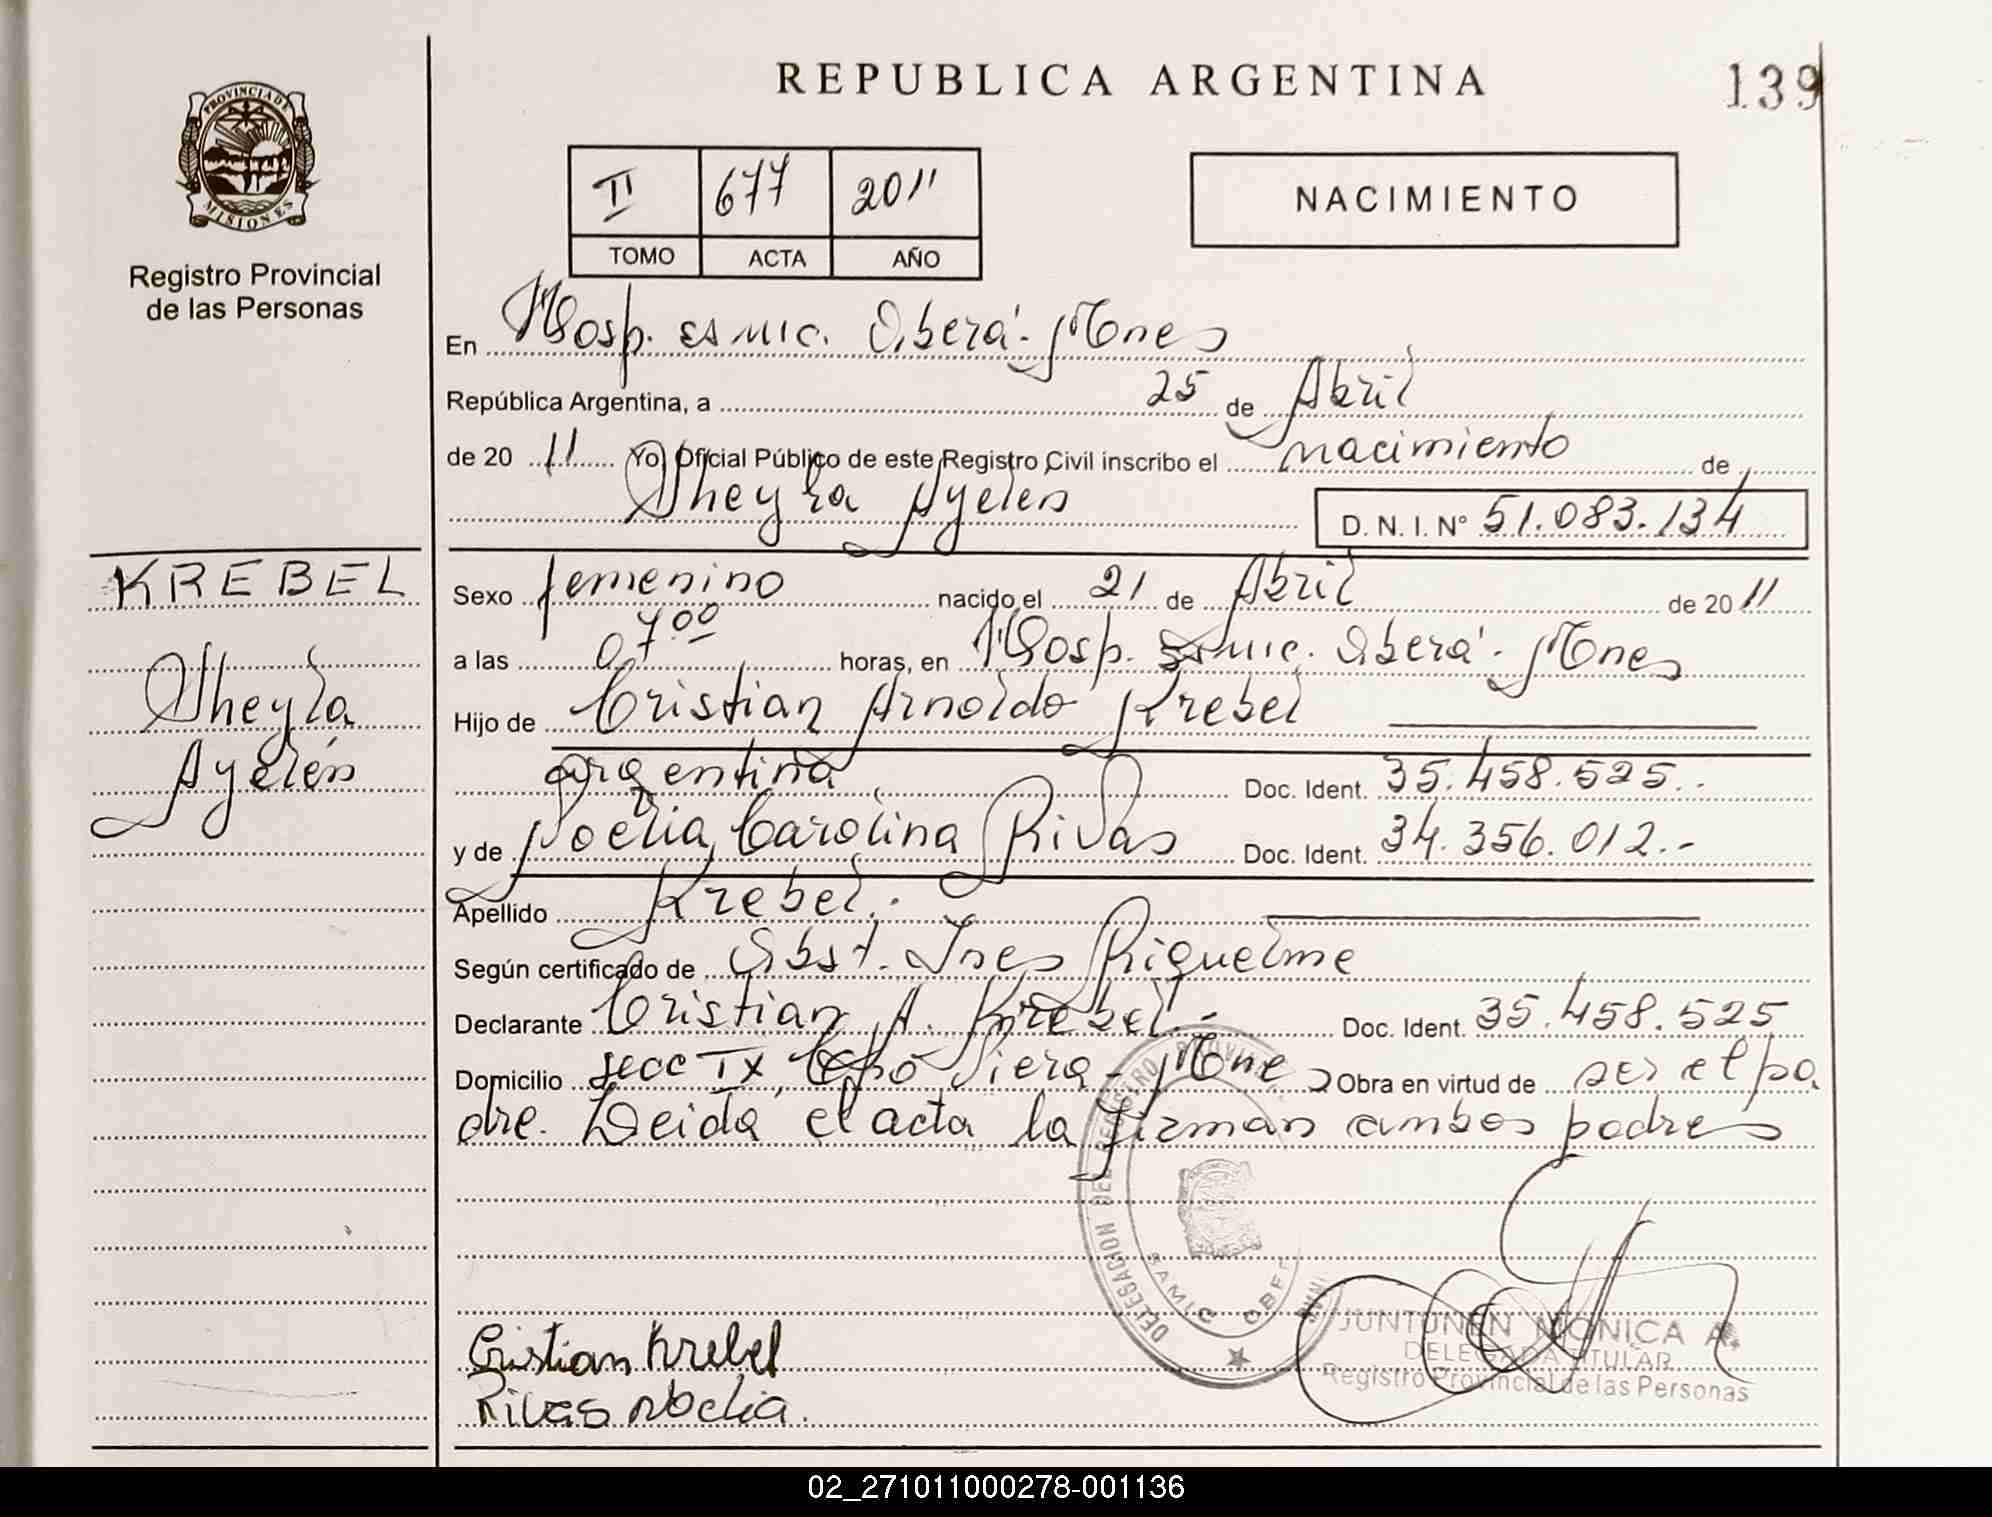 REPUBLICA ARGENTINA
139
PROVINCIA DE
MISIONES
Registro Provincial
de las Personas
II 677 2011
TOMO ACTA AÑO
NACIMIENTO
En Hosp. samic. Oberá - Mnes
República Argentina, a 25 de Abril
de 20 11 Yo, Oficial Público de este Registro Civil inscribo el nacimiento de
Sheyla Ayelen
D. N. I. N° 51.083.134
KREBEL
Sheyla
Ayelén
Sexo femenino nacido el 21 de Abril de 20 11
a las 07 00 horas, en Hosp. samic. Oberá - Mnes
Hijo de Cristian Arnoldo Krebel
argentina Doc. Ident. 35.458.525.-
y de Noelia Carolina Rivas Doc. Ident. 34.356.012.-
Apellido Krebel.-
Según certificado de Obst. Ines Riquelme
Declarante Cristian A. Krebel.- Doc. Ident. 35.458.525
Domicilio secc IX, Cpo Viera - Mnes Obra en virtud de ser el pa
dre. Leida el acta la firman ambos padres
DELEGACION DEL REGISTRO PROVINCIAL
SAMIC OBERA
Cristian Krebel
Rivas Noelia.
JUNTUNEN MONICA A.
DELEGADA TITULAR
Registro Provincial de las Personas
02_271011000278-001136